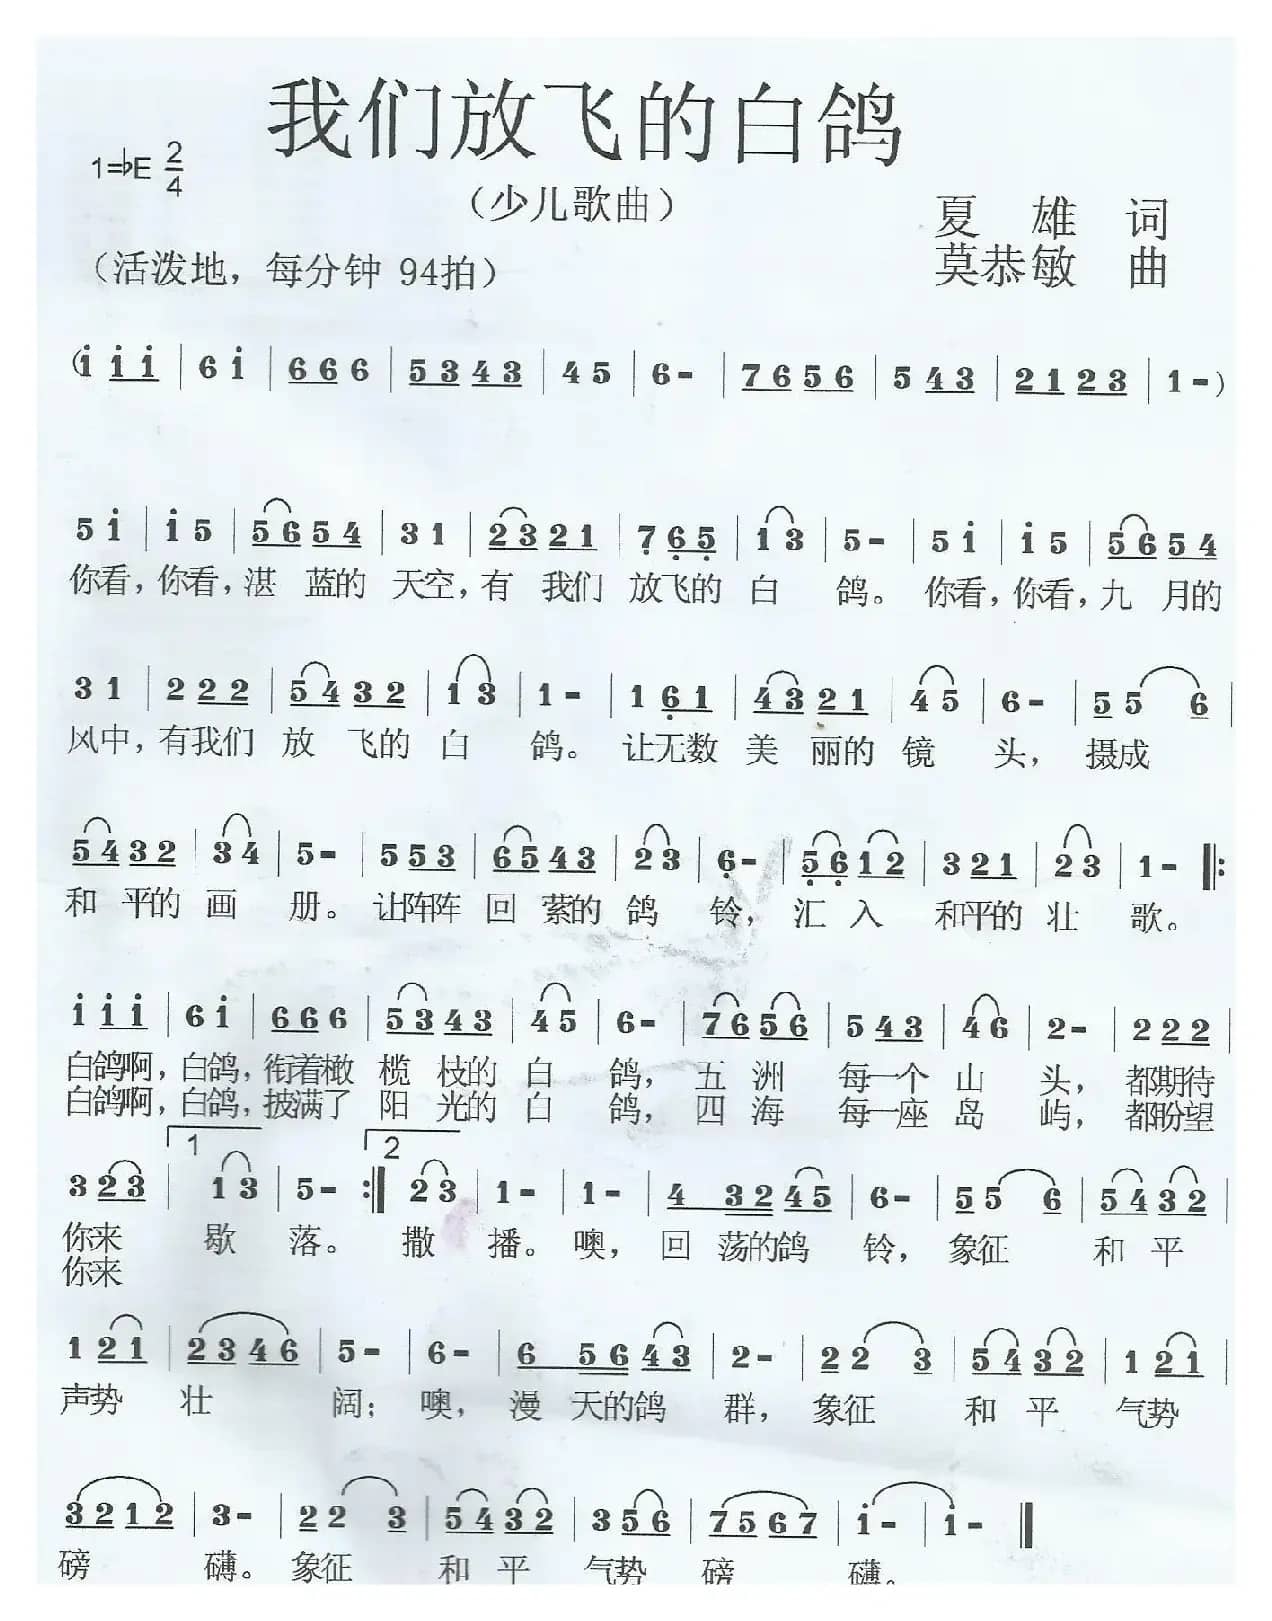 我们放飞的白鸽
1=♭E 2/4
（少儿歌曲）
夏 雄 词
（活泼地，每分钟 94拍）
莫恭敏 曲
(i i i | 6 i | 6 6 6 | 5 3 4 3 | 4 5 | 6 - | 7 6 5 6 | 5 4 3 | 2 1 2 3 | 1 - )
5 i | i 5 | 5 6 5 4 | 3 1 | 2 3 2 1 | 7 6 5 | 1 3 | 5 - | 5 i | i 5 | 5 6 5 4
你看，你看，湛 蓝的 天空，有 我们 放飞的 白 鸽。 你看，你看，九 月的
3 1 | 2 2 2 | 5 4 3 2 | 1 3 | 1 - | 1 6 1 | 4 3 2 1 | 4 5 | 6 - | 5 5 6 |
风中，有我们 放 飞的 白 鸽。 让无数 美 丽的 镜 头， 摄成
5 4 3 2 | 3 4 | 5 - | 5 5 3 | 6 5 4 3 | 2 3 | 6 - | 5 6 1 2 | 3 2 1 | 2 3 | 1 - ‖:
和 平的 画 册。 让阵阵 回 萦的 鸽 铃，汇 入 和平的 壮 歌。
i i i | 6 i | 6 6 6 | 5 3 4 3 | 4 5 | 6 - | 7 6 5 6 | 5 4 3 | 4 6 | 2 - | 2 2 2 |
白鸽啊，白鸽，衔着橄 榄 枝的 白 鸽， 五 洲 每一个 山 头， 都期待
白鸽啊，白鸽，披满了 阳 光的 白 鸽， 四 海 每一座 岛 屿， 都盼望
1 2
3 2 3 | 1 3 | 5 - :‖ 2 3 | 1 - | 1 - | 4 3 2 4 5 | 6 - | 5 5 6 | 5 4 3 2 |
你来 歇 落。 撒 播。 噢， 回 荡的鸽 铃， 象征 和 平
你来
1 2 1 | 2 3 4 6 | 5 - | 6 - | 6 5 6 4 3 | 2 - | 2 2 3 | 5 4 3 2 | 1 2 1 |
声势 壮 阔； 噢， 漫 天的鸽 群， 象征 和 平 气势
3 2 1 2 | 3 - | 2 2 3 | 5 4 3 2 | 3 5 6 | 7 5 6 7 | i - | i - ‖
磅 礴。 象征 和 平 气势 磅 礴。